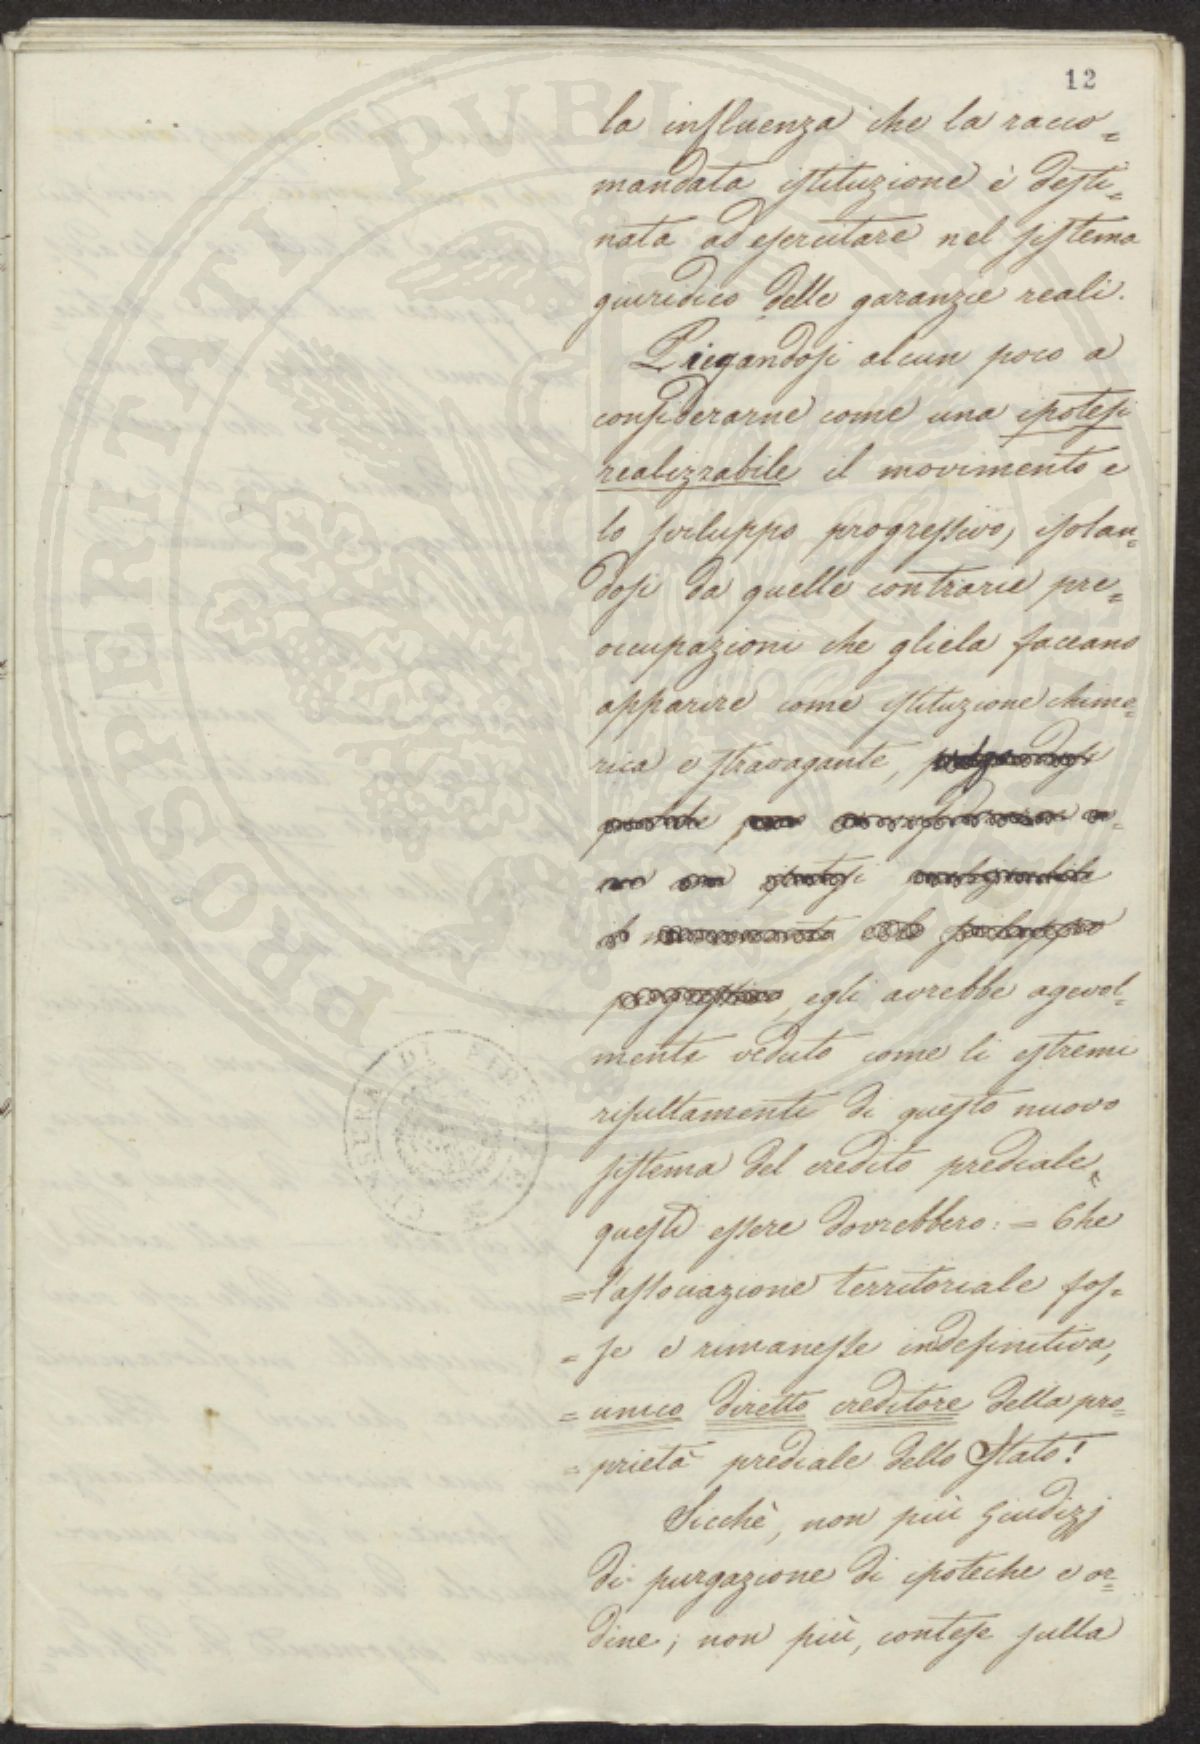 12
la influenza che la racco=
mandata istituzione è desti=
nata ad esercitare nel sistema
giuridico delle garanzie reali.
Piegandosi alcun poco a
considerarne come una ipotesi
realizzabile il movimento e
lo sviluppo progressivo, isolan=
dosi da quelle contrarie pre=
occupazioni che gliela faceano
apparire come istituzione chime=
rica e stravagante,
progressivo, egli avrebbe agevol=
mente veduto come li estremi
risultamenti di questo nuovo
sistema del credito prediale,
questi essere dovrebbero: = Che
=l'associazione territoriale fos=
=se e rimanesse indefinitiva,
=unico diretto creditore della pro=
=prietà prediale dello Stato!
Sicchè, non più Giudizj
di purgazione di ipoteche e or=
dine; non più, contese sulla
PROSPERITATI PUBLICAE
CENSURA DI FIRENZE